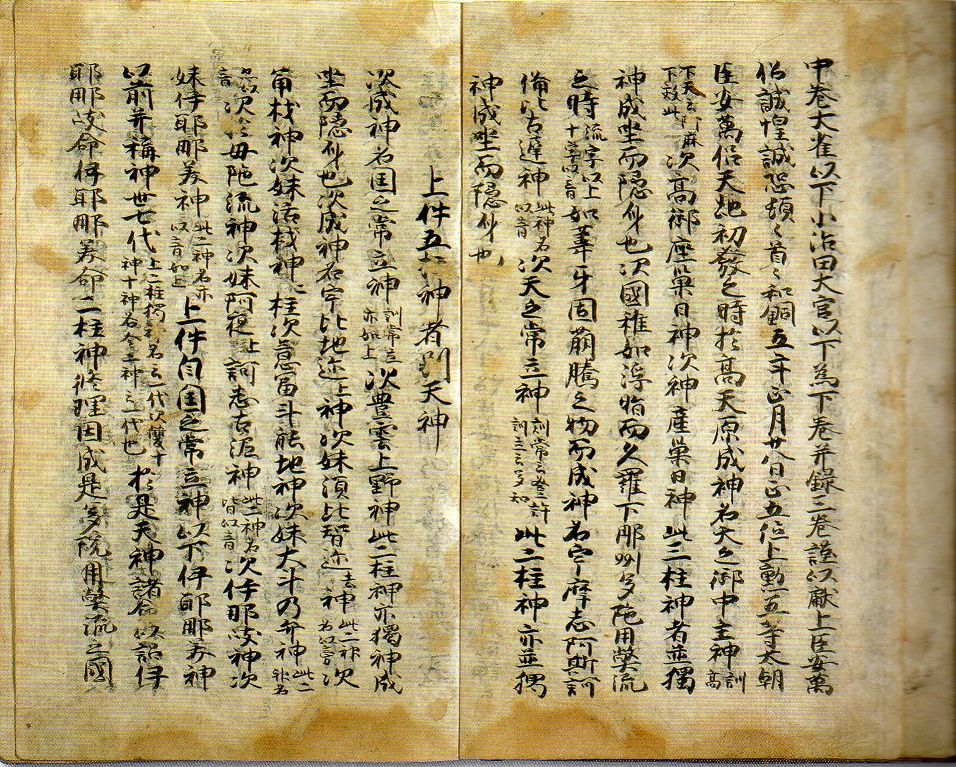 中巻大雀以下小治田大宮以下為下巻并録三巻謹以献上臣安萬
侶誠惶誠恐頓々首々和銅五年正月廿八日正五位上勲五等太朝
臣安萬侶天地初發之時於高天原成神名天之御中主神訓高
下天云阿麻下效此次高御座巣日神次神産巣日神此三柱神者並獨
神成坐而隱身也次國稚如浮脂而久羅下那州多陁用弊流
之時流字以上十字以音如葦牙因萌騰之物而成神名宇摩志阿斯訶
備比古遲神此神名以音次天之常立神訓常云登許訓立云多知此二柱神亦並獨
神成坐而隱身也
上件五柱神者別天神
次成神名国之常立神訓常立亦如上次豊雲上野神此二柱神亦獨神成
坐而隱身也次成神名宇比地迩上神次妹須比智迩去神此二神名以音次
角杙神次妹活杙神二柱次意富斗能地神次妹大斗乃弁神此二神名
亦以音次於母陁流神次妹阿夜上訶志古泥神此二神名皆以音次伊耶那岐神次
妹伊耶那美神此二神名亦以音如上上件自国之常立神以下伊耶那美神
以前并稱神世七代上二柱獨神各云一代次雙十神各合二神云一代也於是天神諸命以詔伊
耶那岐命伊耶那美命二柱神修理固成是多陁用弊流之國